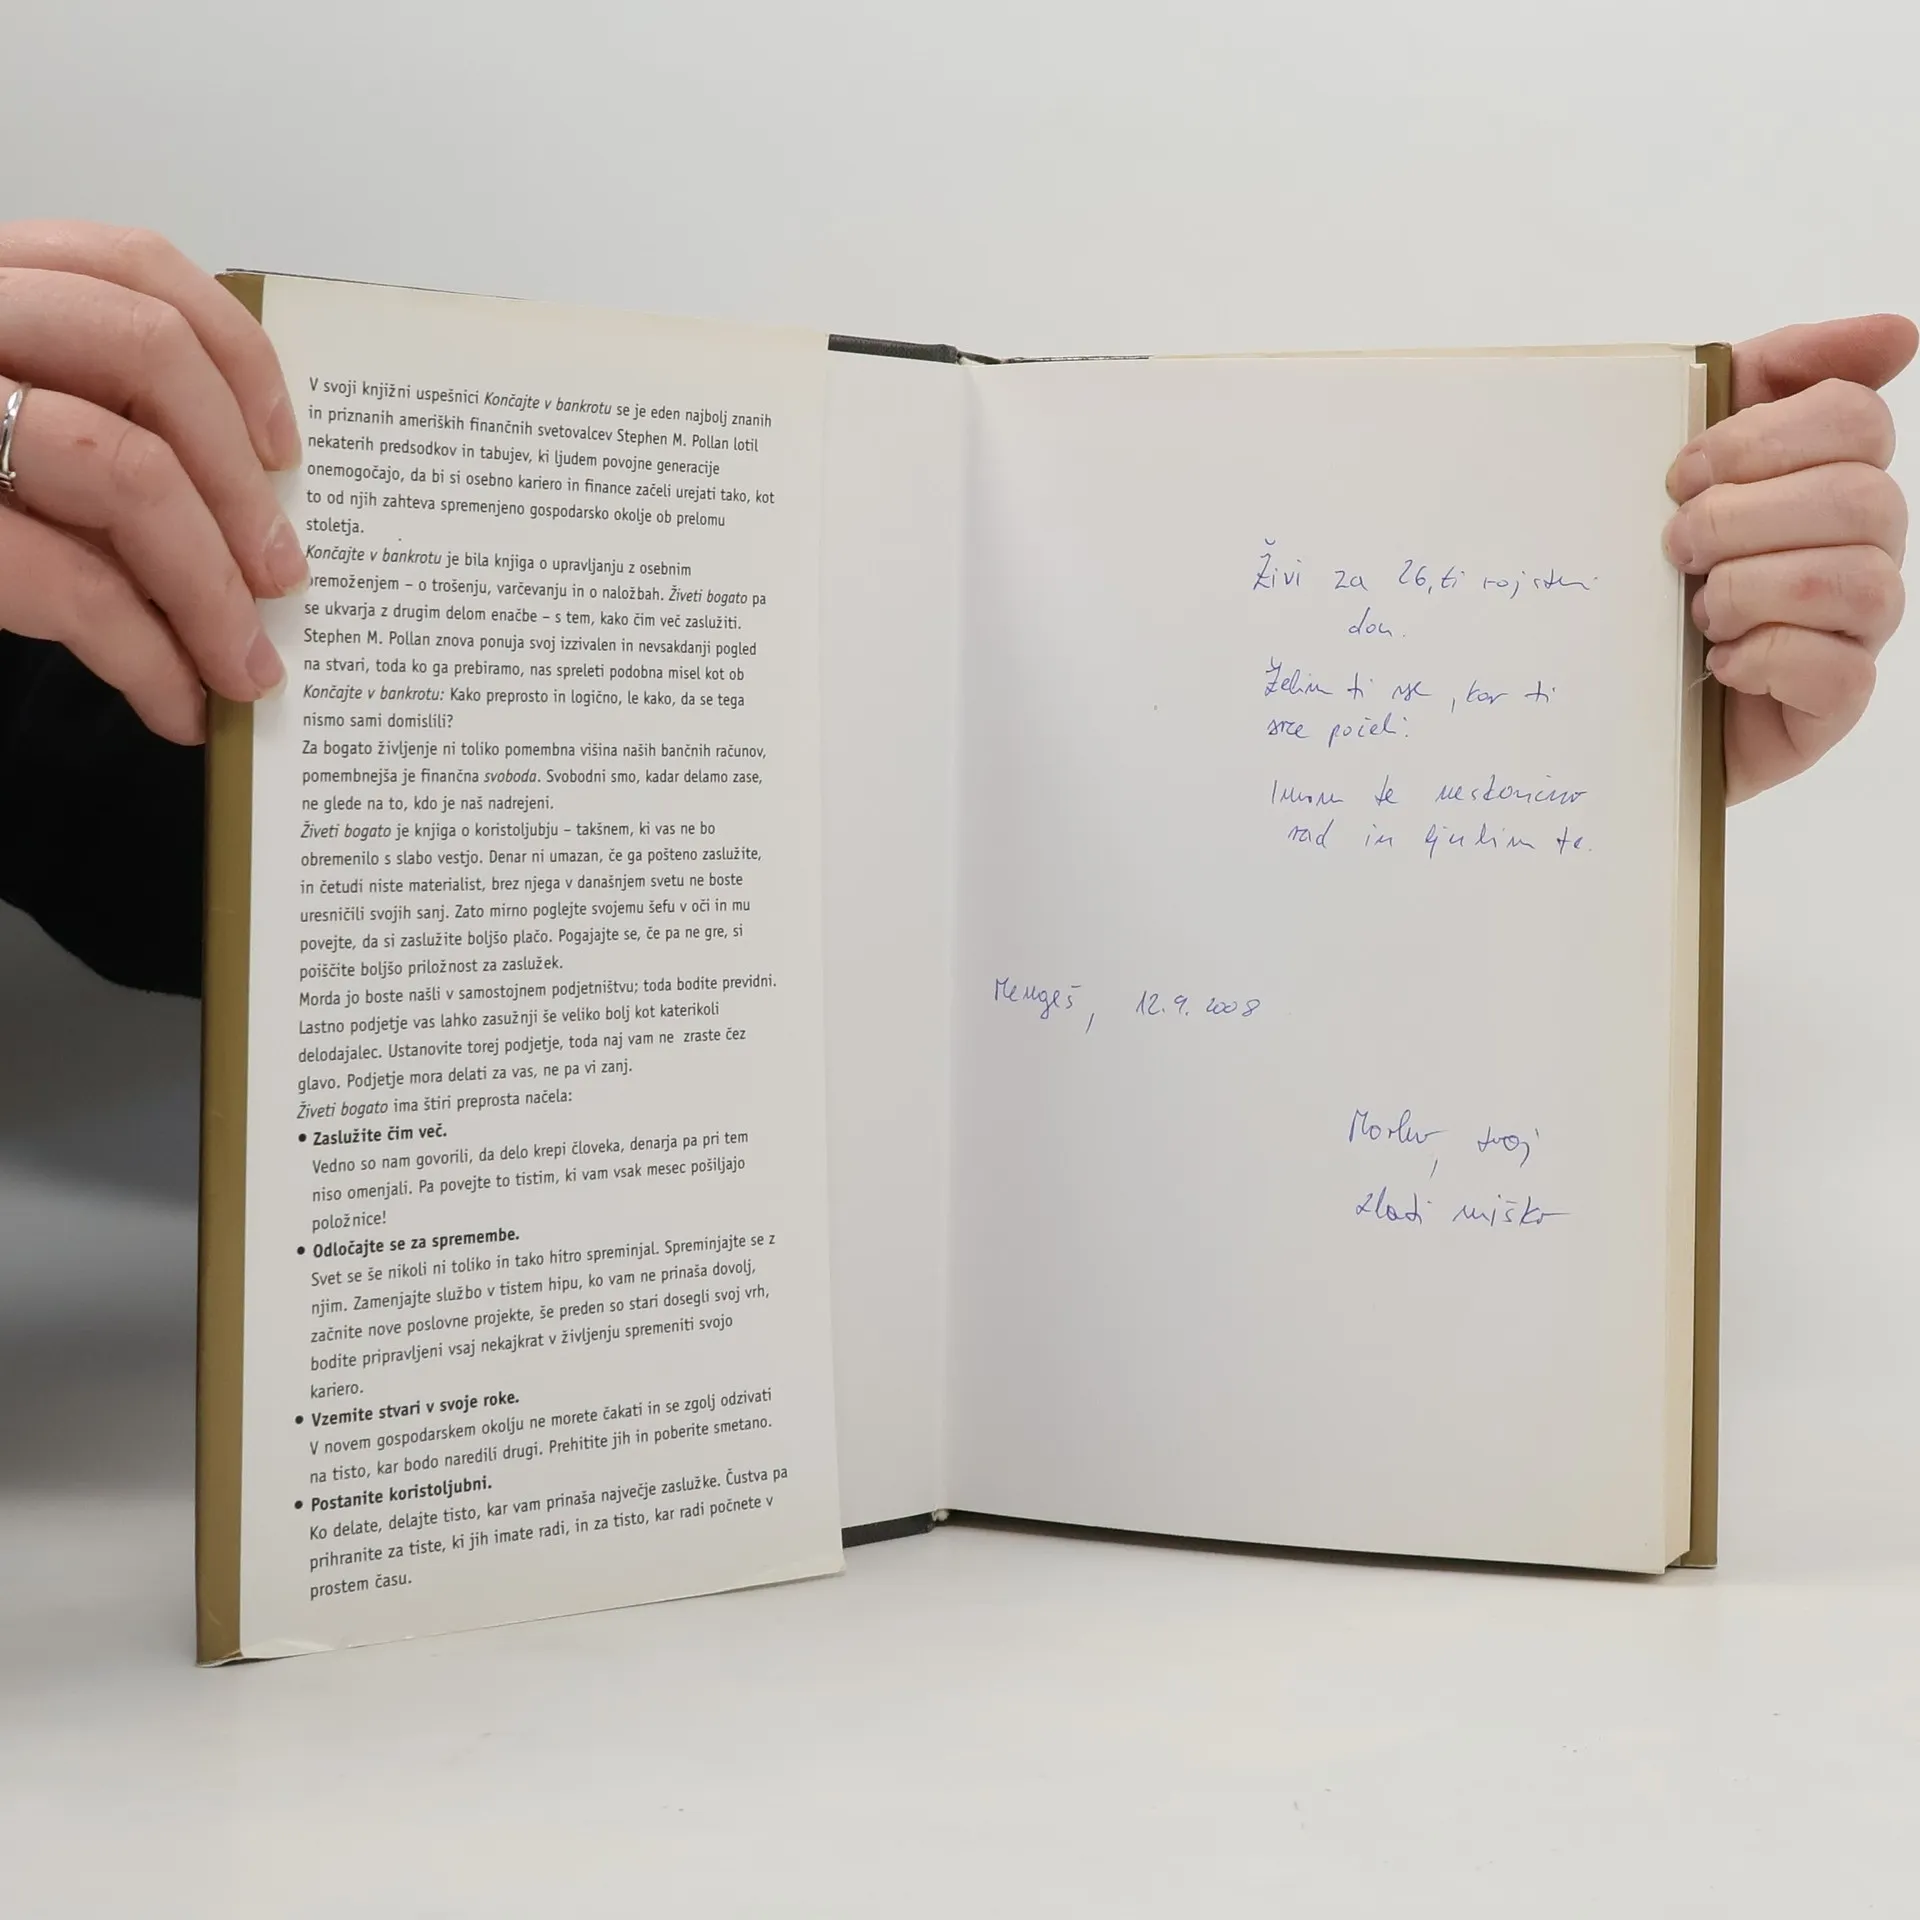 V svoji knjižni uspešnici Končajte v bankrotu se je eden najbolj znanih
in priznanih ameriških finančnih svetovalcev Stephen M. Pollan lotil
nekaterih predsodkov in tabujev, ki ljudem povojne generacije
onemogočajo, da bi si osebno kariero in finance začeli urejati tako, kot
to od njih zahteva spremenjeno gospodarsko okolje ob prelomu
stoletja.
Končajte v bankrotu je bila knjiga o upravljanju z osebnim
premoženjem – o trošenju, varčevanju in o naložbah. Živeti bogato pa
se ukvarja z drugim delom enačbe – s tem, kako čim več zaslužiti.
Stephen M. Pollan znova ponuja svoj izzivalen in nevsakdanji pogled
na stvari, toda ko ga prebiramo, nas spreleti podobna misel kot ob
Končajte v bankrotu: Kako preprosto in logično, le kako, da se tega
nismo sami domislili?
Za bogato življenje ni toliko pomembna višina naših bančnih računov,
pomembnejša je finančna svoboda. Svobodni smo, kadar delamo zase,
ne glede na to, kdo je naš nadrejeni.
Živeti bogato je knjiga o koristoljubju – takšnem, ki vas ne bo
obremenilo s slabo vestjo. Denar ni umazan, če ga pošteno zaslužite,
in četudi niste materialist, brez njega v današnjem svetu ne boste
uresničili svojih sanj. Zato mirno poglejte svojemu šefu v oči in mu
povejte, da si zaslužite boljšo plačo. Pogajajte se, če pa ne gre, si
poiščite boljšo priložnost za zaslužek.
Morda jo boste našli v samostojnem podjetništvu; toda bodite previdni.
Lastno podjetje vas lahko zasužnji še veliko bolj kot katerikoli
delodajalec. Ustanovite torej podjetje, toda naj vam ne zraste čez
glavo. Podjetje mora delati za vas, ne pa vi zanj.
Živeti bogato ima štiri preprosta načela:
• Zaslužite čim več.
Vedno so nam govorili, da delo krepi človeka, denarja pa pri tem
niso omenjali. Pa povejte to tistim, ki vam vsak mesec pošiljajo
položnice!
• Odločajte se za spremembe.
Svet se še nikoli ni toliko in tako hitro spreminjal. Spreminjajte se z
njim. Zamenjajte službo v tistem hipu, ko vam ne prinaša dovolj,
začnite nove poslovne projekte, še preden so stari dosegli svoj vrh,
bodite pripravljeni vsaj nekajkrat v življenju spremeniti svojo
kariero.
• Vzemite stvari v svoje roke.
V novem gospodarskem okolju ne morete čakati in se zgolj odzivati
na tisto, kar bodo naredili drugi. Prehitite jih in poberite smetano.
• Postanite koristoljubni.
Ko delate, delajte tisto, kar vam prinaša največje zaslužke. Čustva pa
prihranite za tiste, ki jih imate radi, in za tisto, kar radi počnete v
prostem času.
Živi za 26,ti rojstni
dan.
Želim ti vse, kar ti
srce poželi.
Imam te neskončno
rad in ljubim te.
Mengeš, 12.9.2008
tvoj
zlati miško